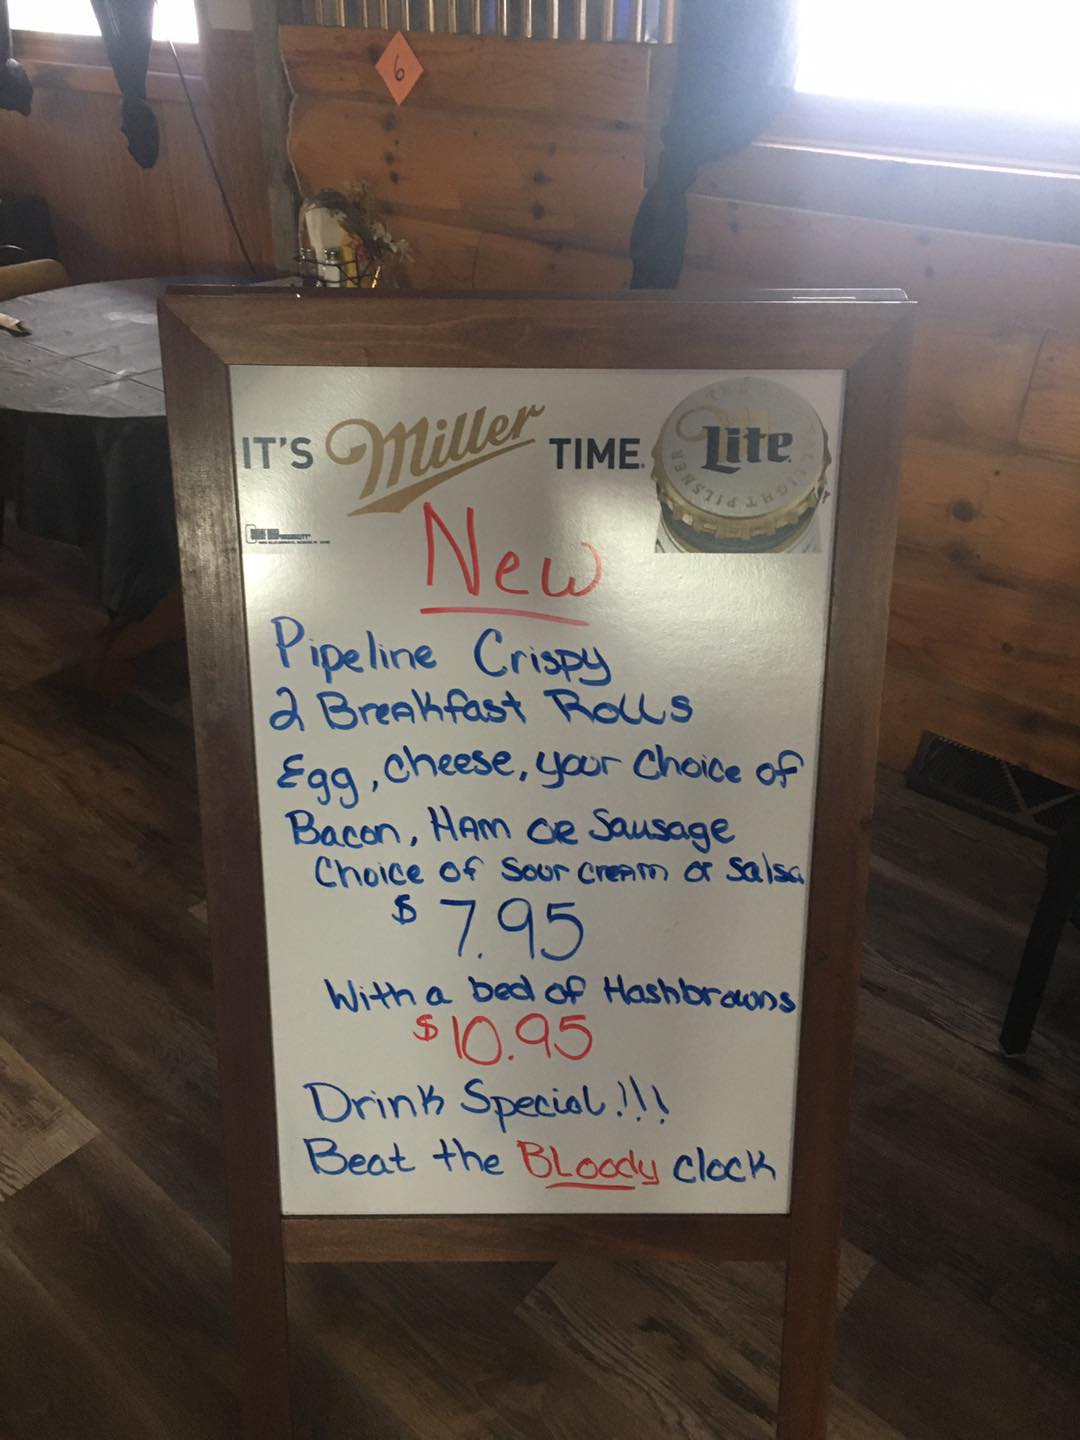 6
IT'S Miller TIME.
Lite
LIGHT PILSNER
New
Pipeline Crispy
2 Breakfast Rolls
Egg, cheese, your choice of
Bacon, HAM OR Sausage
Choice of sour cream or salsa
$7.95
With a bed of Hashbrowns
$10.95
Drink Special!!!
Beat the BLoody clock